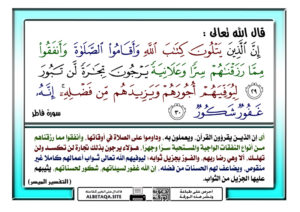 قال الله تعالى :
إِنَّ الَّذِينَ يَتْلُونَ كِتَٰبَ اللَّهِ وَأَقَامُوا الصَّلَوٰةَ وَأَنفَقُوا
مِمَّا رَزَقْنَٰهُمْ سِرًّا وَعَلَانِيَةً يَرْجُونَ تِجَٰرَةً لَّن تَبُورَ
٢٩ لِيُوَفِّيَهُمْ أُجُورَهُمْ وَيَزِيدَهُم مِّن فَضْلِهِۦٓ إِنَّهُۥ
غَفُورٌ شَكُورٌ ٣٠
سورة فاطر
أي إن الذين يقرؤون القرآن، ويعملون به، وداوموا على الصلاة في أوقاتها، وأنفقوا مما رزقناهم
من أنواع النفقات الواجبة والمستحبة سرًا وجهرًا، هؤلاء يرجون بذلك تجارة لن تكسد، ولن
تهلك، ألا وهي رضا ربهم، والفوز بجزيل ثوابه؛ ليوفيهم الله تعالى ثواب أعمالهم كاملا غير
منقوص، ويضاعف لهم الحسنات من فضله، إن الله غفور لسيئاتهم، شكور لحسناتهم، يثيبهم
عليها الجزيل من الثواب.
(التفسير الميسر)
احرص على طباعة
ونشر هذه الورقة
ALBETAQA.SITE